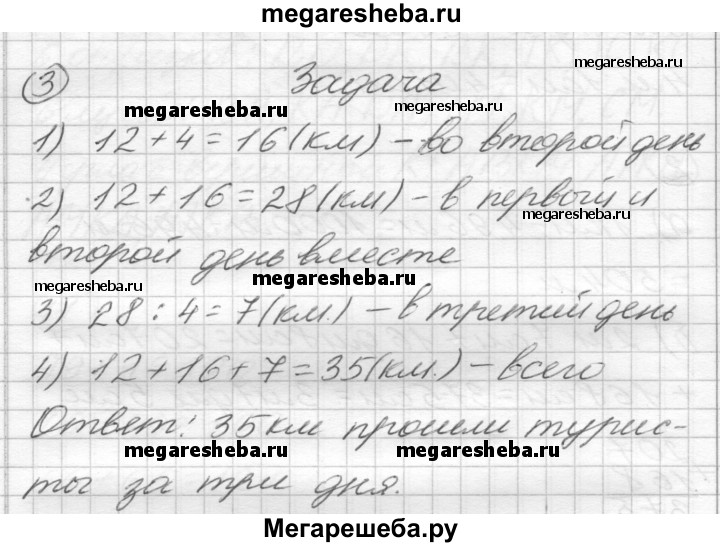 megaresheba.ru
3 Задача
megaresheba.ru megaresheba.ru
1) 12 + 4 = 16 (км) - во второй день
megaresheba.ru
2) 12 + 16 = 28 (км) - в первый и
megaresheba.ru
второй день вместе
megaresheba.ru megaresheba.ru
3) 28 : 4 = 7 (км.) - в третий день
4) 12 + 16 + 7 = 35 (км.) - всего
Ответ: 35 км прошли турис-
megaresheba.ru megaresheba.ru
ты за три дня.
Мегарешеба.ру